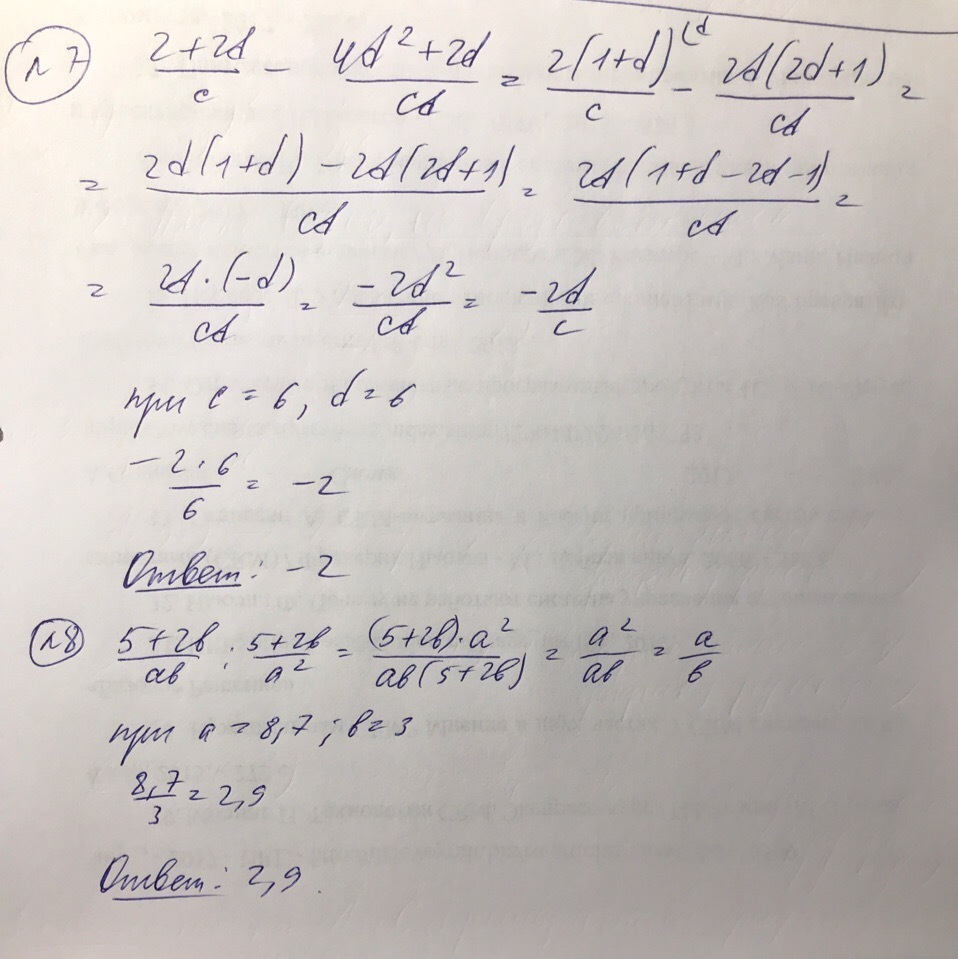 №7 (2+2d)/c − (4d²+2d)/cd = 2(1+d)/c ^(d − 2d(2d+1)/cd =
= (2d(1+d) − 2d(2d+1))/cd = 2d(1+d−2d−1)/cd =
= 2d·(−d)/cd = −2d²/cd = −2d/c
при c = 6, d = 6
−2·6/6 = −2
Ответ: −2
№8 (5+2b)/ab : (5+2b)/a² = (5+2b)·a²/ab(5+2b) = a²/ab = a/b
при a = 8,7 ; b = 3
8,7/3 = 2,9
Ответ: 2,9.